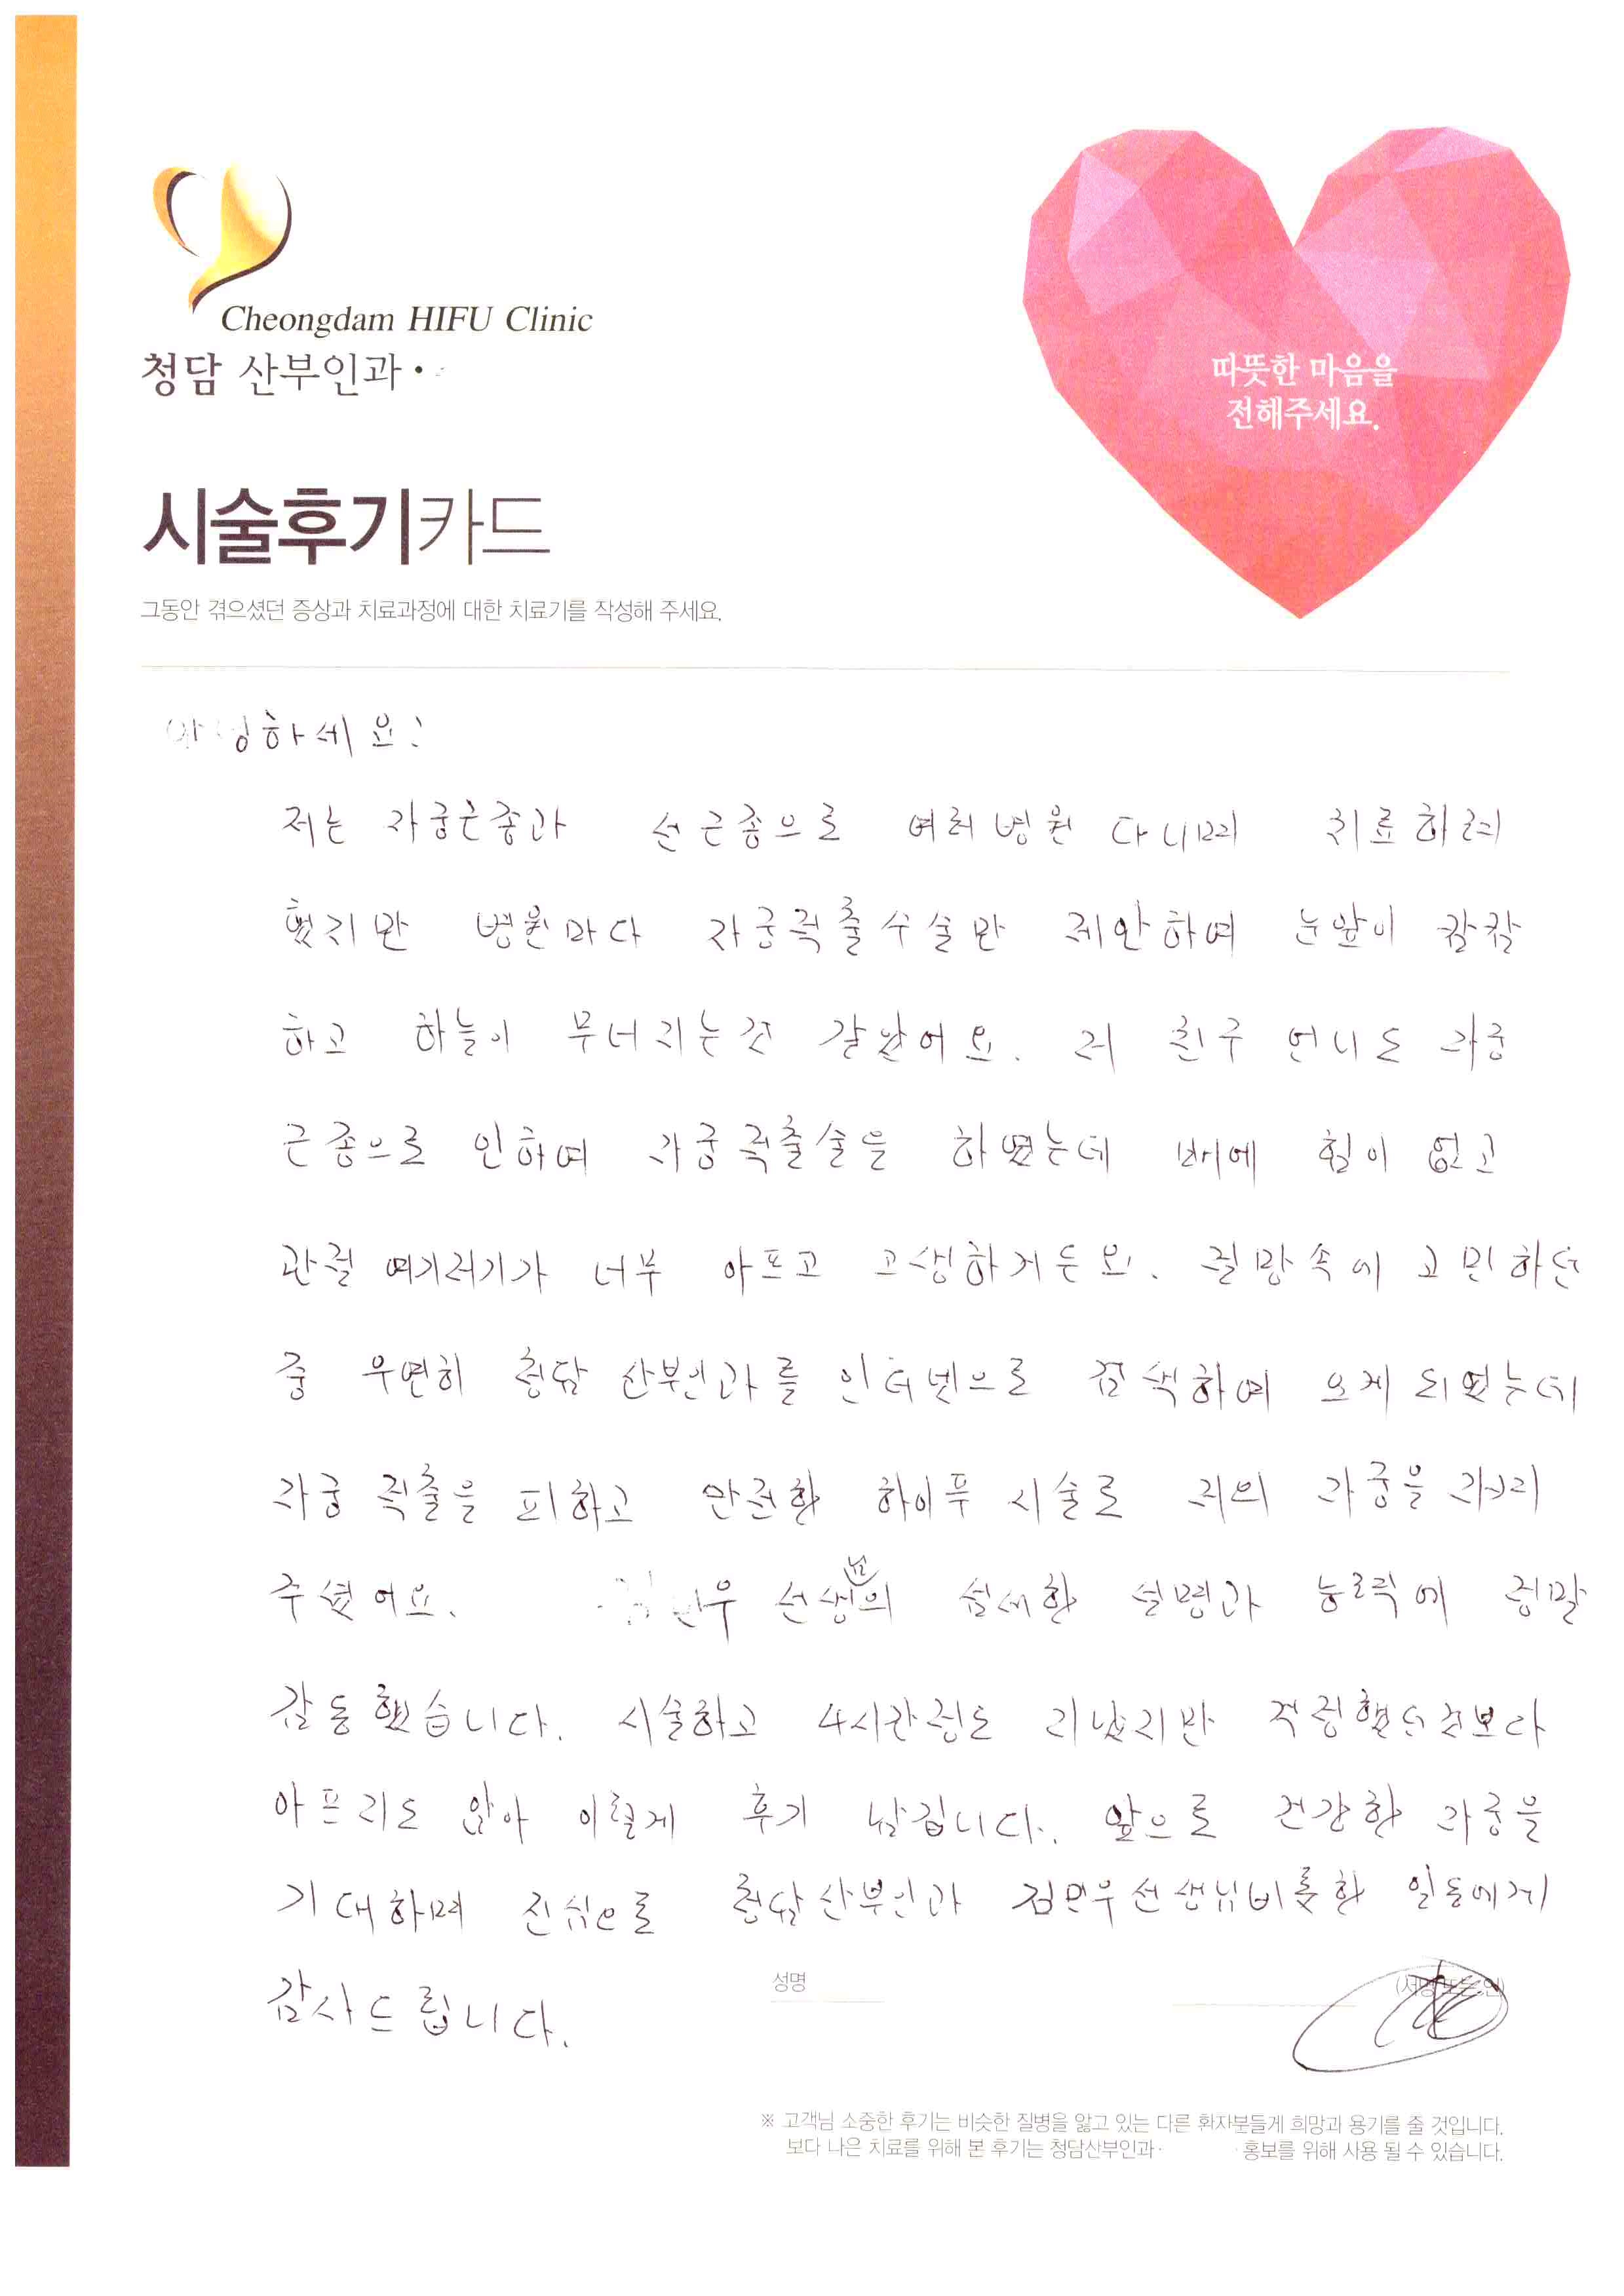 Cheongdam HIFU Clinic
청담 산부인과
따뜻한 마음을
전해주세요.
시술후기카드
그동안 겪으셨던 증상과 치료과정에 대한 치료기를 작성해 주세요.
안녕하세요!
저는 자궁근종과 선근종으로 여러병원 다니며 치료하려
했지만 병원마다 자궁적출수술만 제안하여 눈앞이 캄캄
하고 하늘이 무너지는것 같았어요. 저 친구 언니도 자궁
근종으로 인하여 자궁적출술을 하였는데 배에 힘이 없고
관절 여기저기가 너무 아프고 고생하거든요. 절망속에 고민하던
중 우연히 청담 산부인과를 인터넷으로 검색하여 오게 되었는데
자궁 적출을 피하고 안전한 하이푸 시술로 저의 자궁을 지켜
주셨어요. 김민우 선생님의 섬세한 설명과 능력에 정말
감동했습니다. 시술하고 4시간정도 지났지만 걱정했던것보다
아프지도 않아 이렇게 후기 남깁니다. 앞으로 건강한 자궁을
기대하며 진심으로 청담산부인과 김민우선생님비롯한 일동에게
감사드립니다.
성명
(서명 또는 인)
※ 고객님 소중한 후기는 비슷한 질병을 앓고 있는 다른 환자분들게 희망과 용기를 줄 것입니다.
보다 나은 치료를 위해 본 후기는 청담산부인과· ·홍보를 위해 사용 될 수 있습니다.